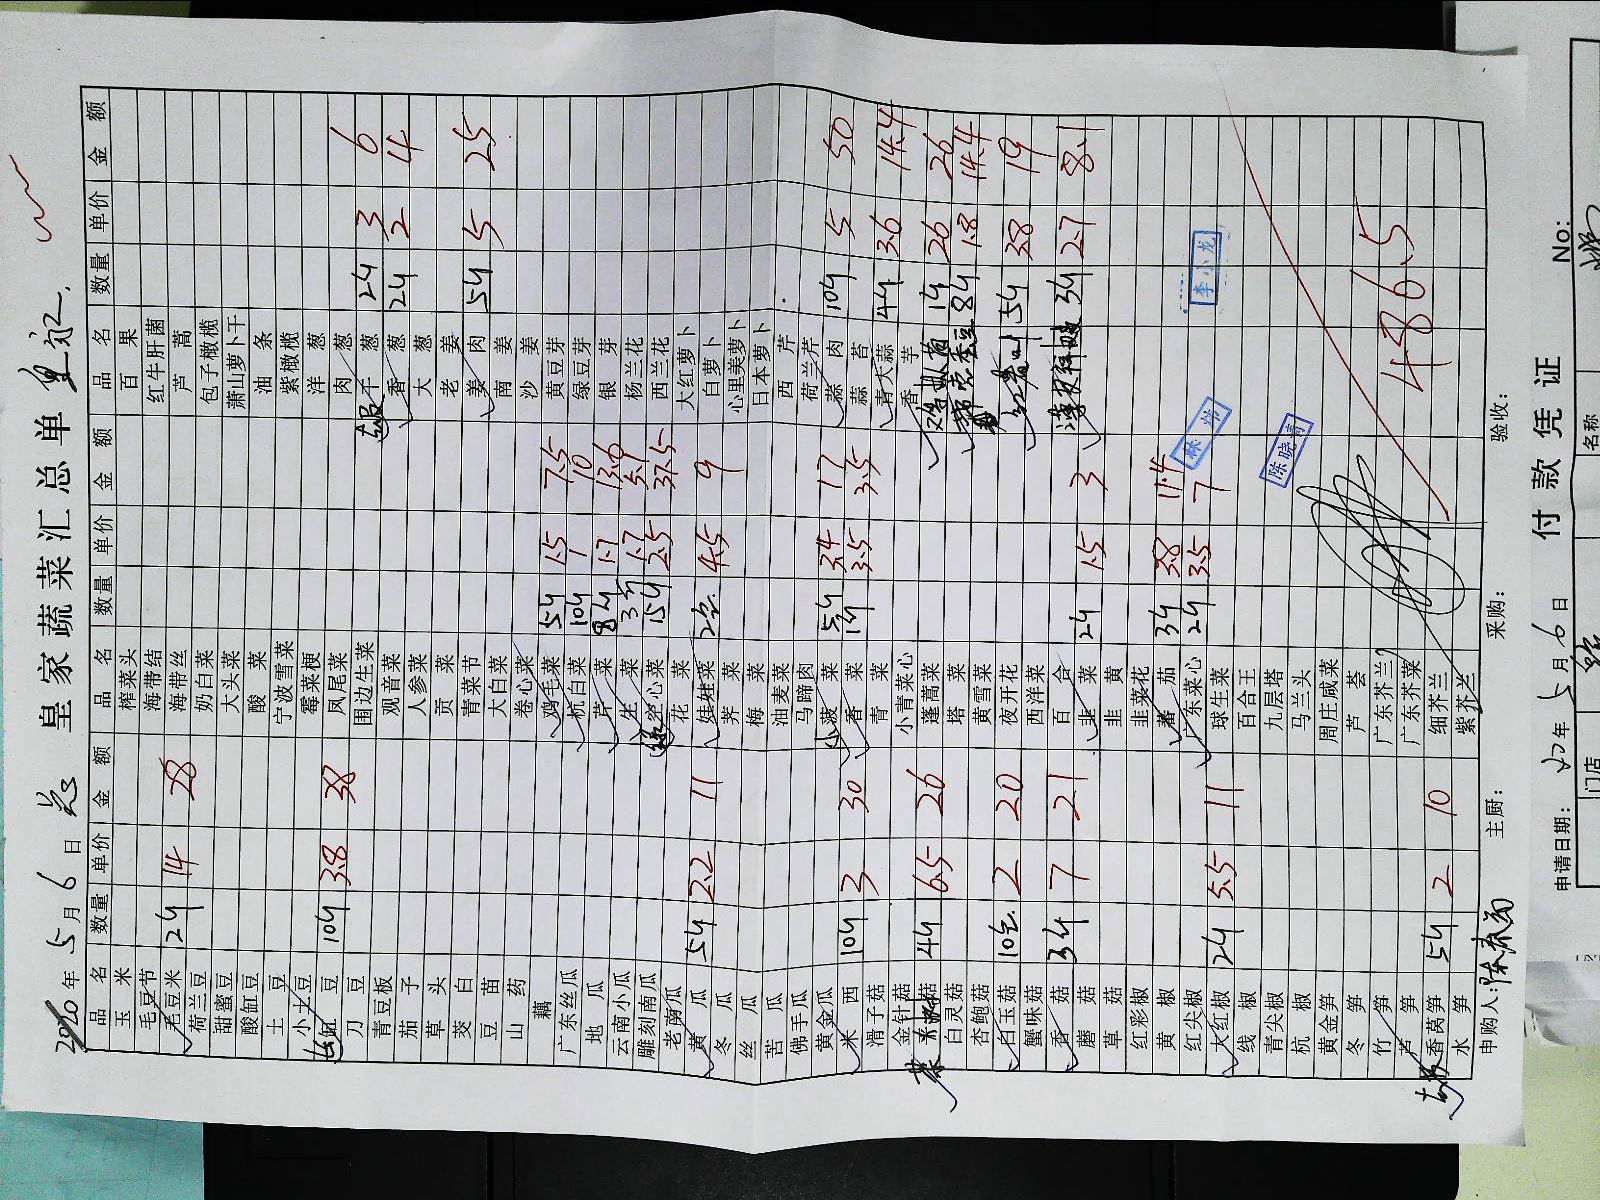 皇家蔬菜汇总单
2020年5月6日
品名 数量 单价 金额 品名 数量 单价 金额 品名 数量 单价 金额
玉米 榨菜头 百果
毛豆节 海带结 红牛肝菌
毛豆米 2斤 14 28 海带丝 芦蒿
荷兰豆 奶白菜 包子橄榄
甜蜜豆 大头菜 萧山萝卜干
酸缸豆 酸菜 油条
土豆 宁波雪菜 紫橄榄
小土豆 霉菜梗 洋葱
豇豆 10斤 3.8 38 凤尾菜 肉葱
刀豆 围边生菜 干葱 2斤 3 6
青豆板 观音菜 香葱 2斤 2 4
茄子 人参菜 大葱
草头 贡菜 老姜
茭白 青菜节 姜肉 5斤 5 25
豆苗 大白菜 南姜
山药 卷心菜 沙姜
藕 鸡毛菜 5斤 1.5 7.5 黄豆芽
广东丝瓜 杭白菜 10斤 1 10 绿豆芽
地瓜 芹菜 8斤 1.7 13.6 银芽
云南小瓜 生菜 3斤 1.7 5.1 杨兰花
雕刻南瓜 空心菜 15斤 2.5 37.5 西兰花
老南瓜 花菜 大红萝卜
黄瓜 5斤 2.2 11 娃娃菜 2包 4.5 9 白萝卜
冬瓜 荠菜 心里美萝卜
丝瓜 梅菜 日本萝卜
苦瓜 油麦菜 西芹
佛手瓜 马蹄肉 荷兰芹
黄金瓜 小菠菜 5斤 3.4 17 蒜肉 10斤 5 50
米西 10斤 3 30 香菜 1斤 3.5 3.5 蒜苔
滑子菇 青菜 青大蒜 4斤 3.6 14.4
金针菇 小青菜心 香芋
茶树菇 4斤 6.5 26 蓬蒿菜 鸡枞菌 1斤 26 26
白灵菇 塔菜 带壳蚕豆 8斤 1.8 14.4
杏鲍菇 黄雪菜
白玉菇 10包 2 20 夜开花 5斤 3.8 19
蟹味菇 西洋菜
香菇 3斤 7 21 百合 薄皮辣椒 3斤 2.7 8.1
蘑菇 韭菜 2斤 1.5 3
草菇 韭黄
红彩椒 韭菜花
黄椒 蕃茄 3斤 3.8 11.4
红尖椒 广东菜心 2斤 3.5 7
大红椒 2斤 5.5 11 球生菜
线椒 百合王
青尖椒 九层塔
杭椒 马兰头
黄金笋 周庄咸菜
冬笋 芦荟
竹笋 广东芥兰
芦笋 广东芥菜
香莴笋 5斤 2 10 细芥兰
水笋 紫芥兰
李小龙
陈晓清
486.5
申购人: 主厨: 采购: 验收:
付款凭证
No:
申请日期: 20年5月6日
门店 名称